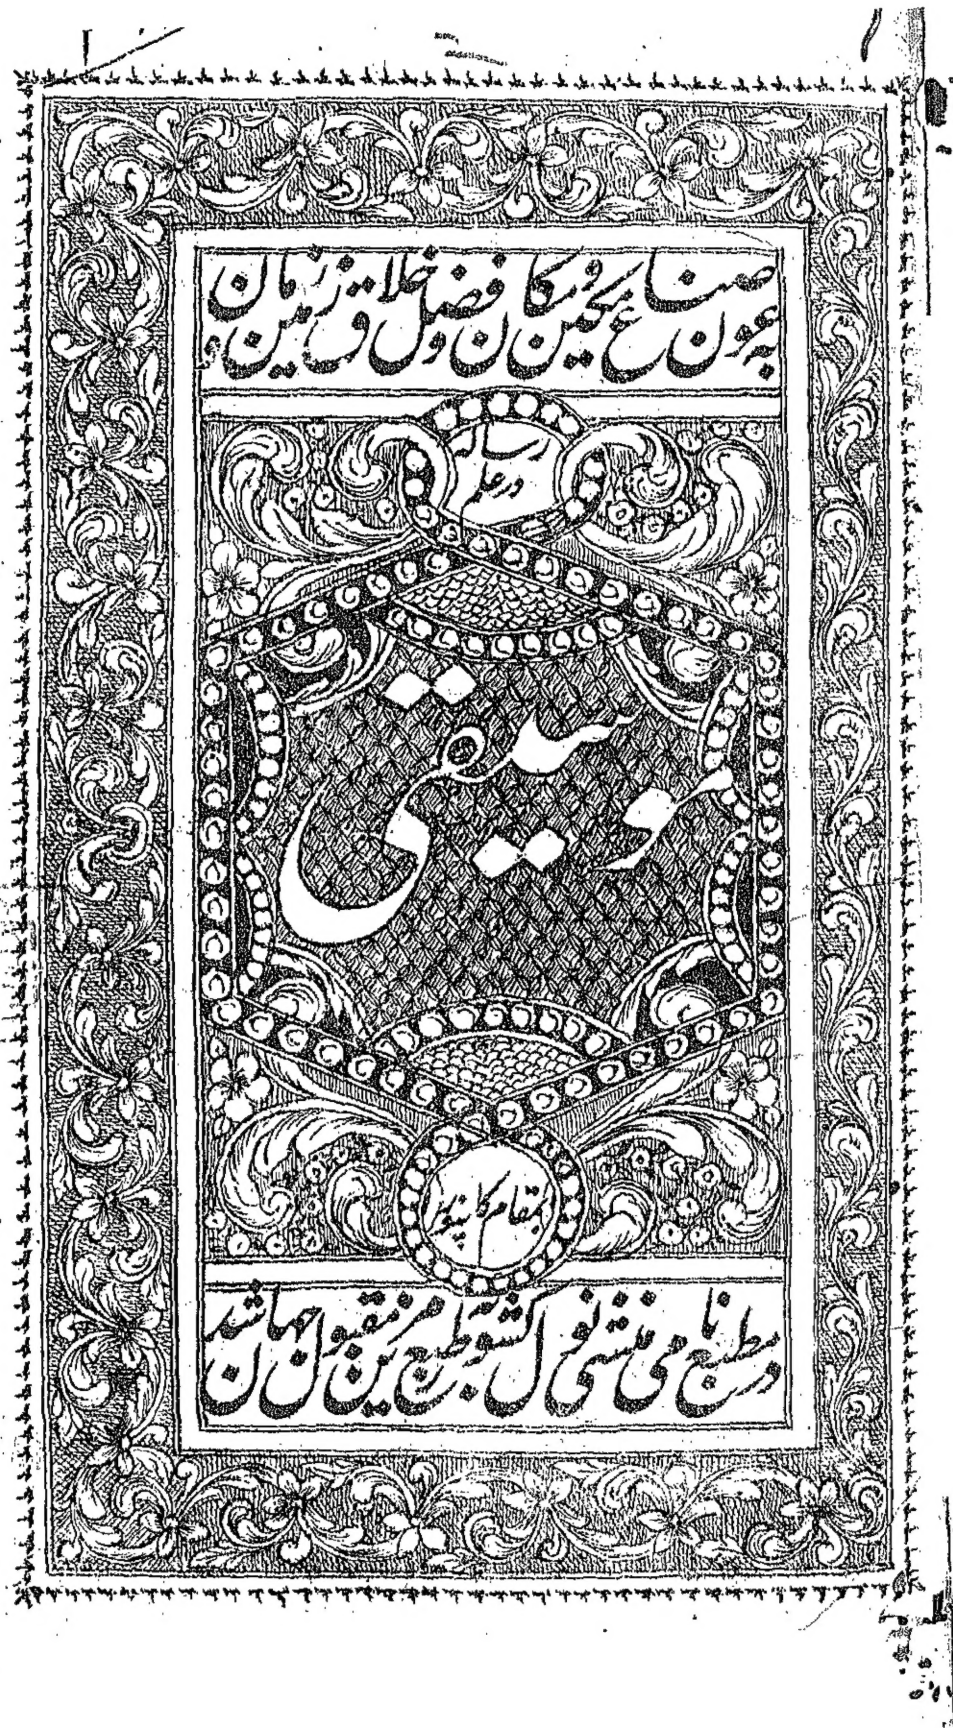 بہ عون صناع مکین و مکان و فضل خلاق زمین و زمان
رسالہ
در علم
موسیقی
بمقام کانپور
در مطبع نامی منشی نولکشور بہ طبع مزین مقبول جہان شد